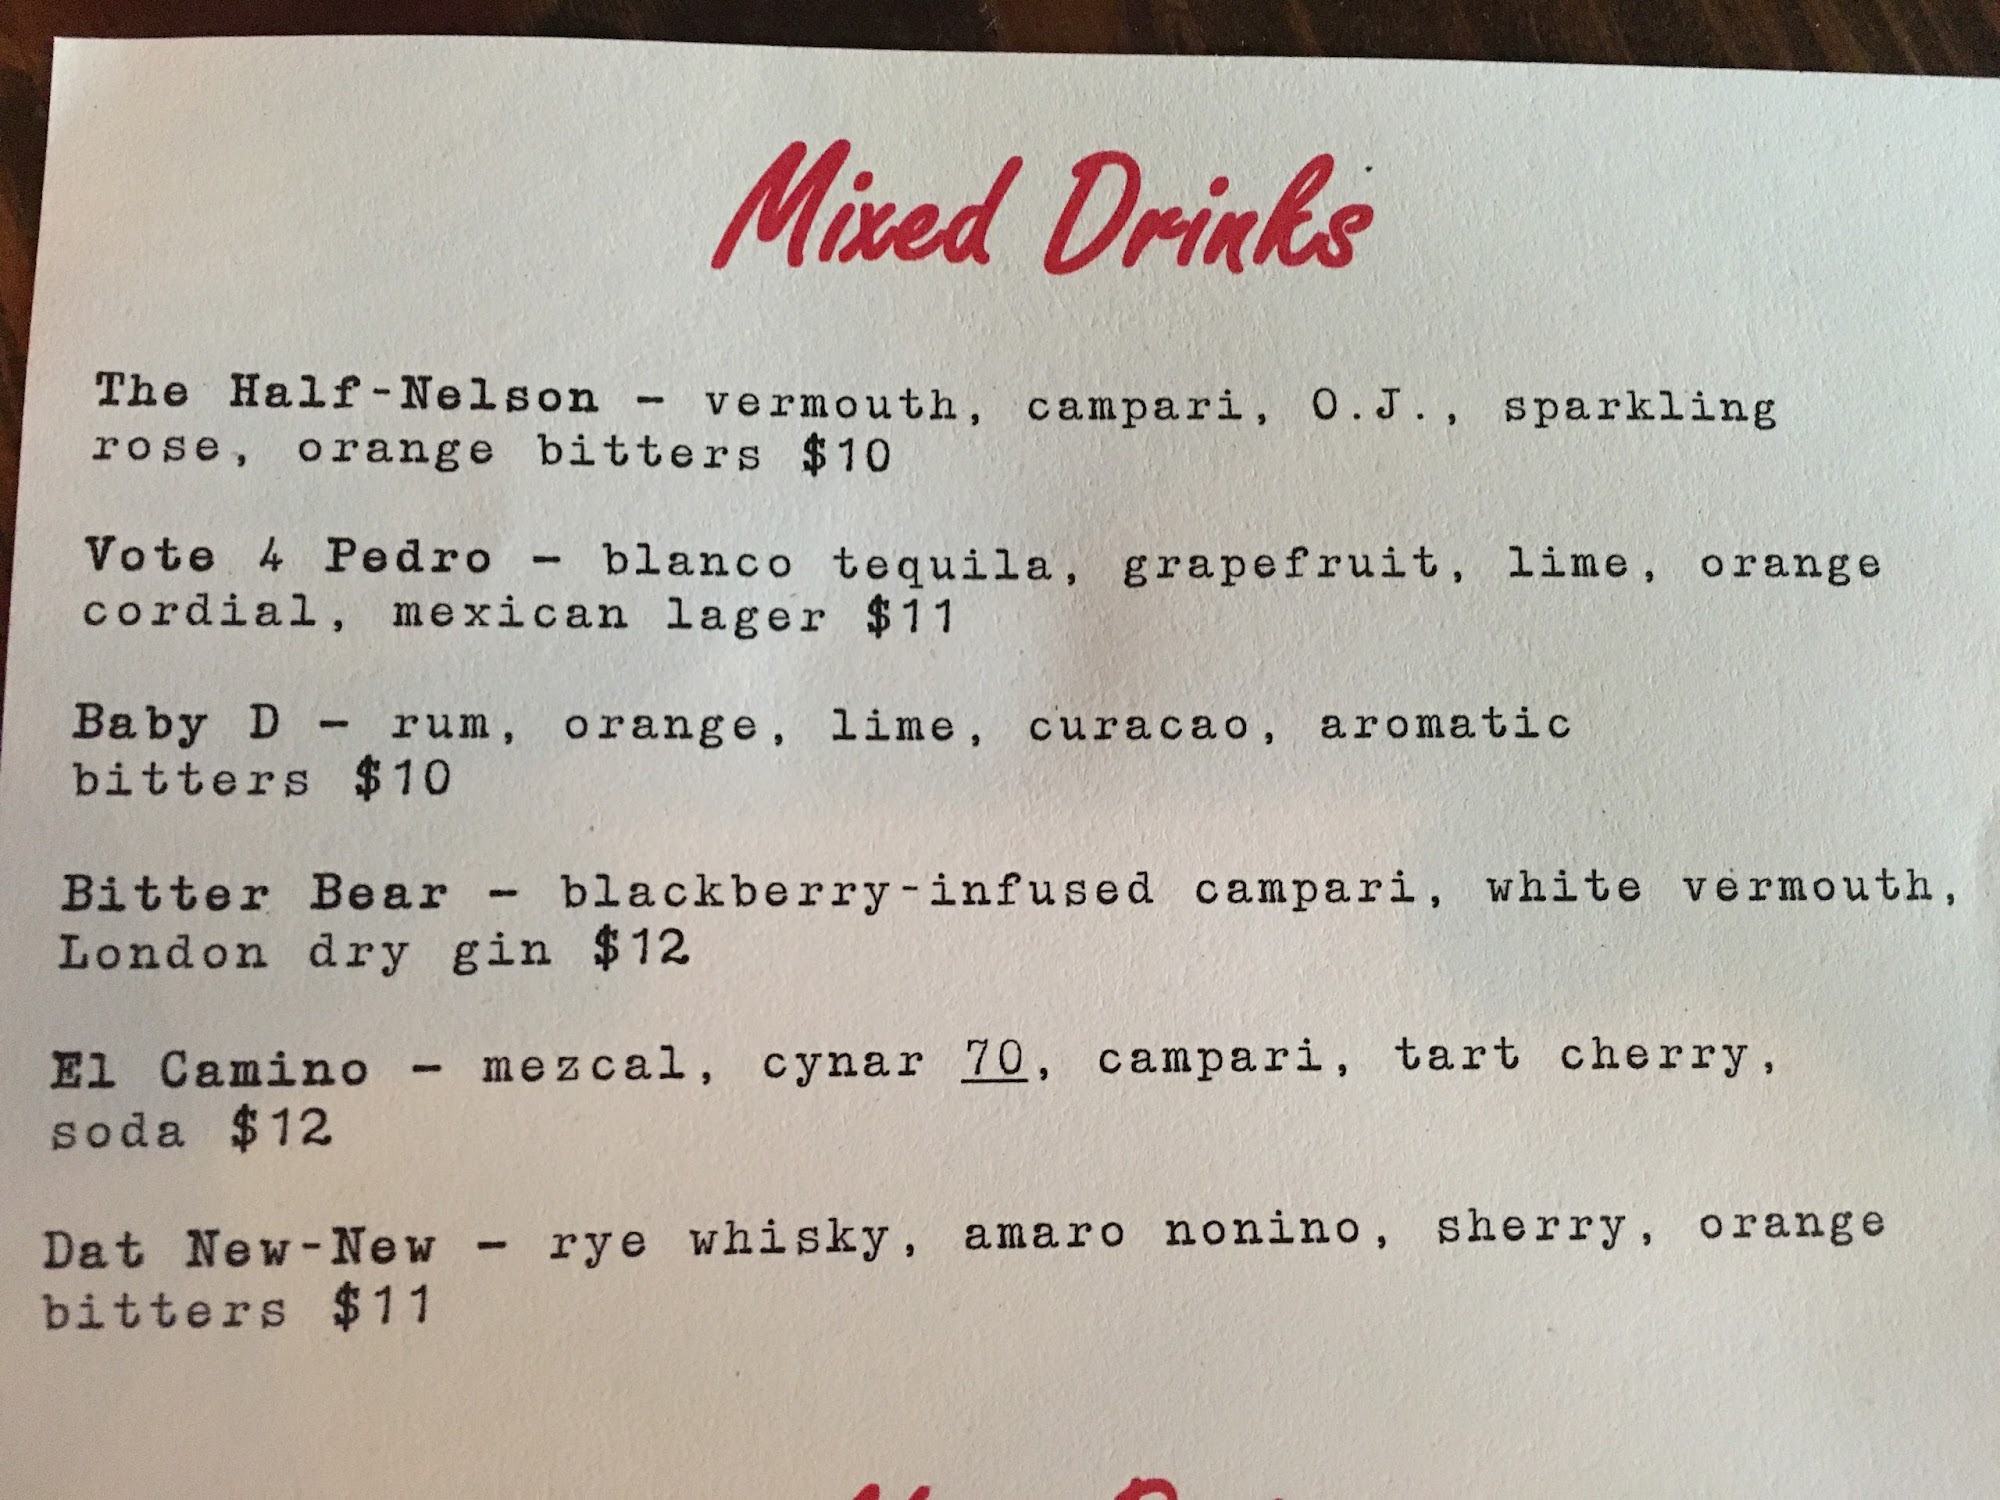 Mixed Drinks
The Half-Nelson – vermouth, campari, O.J., sparkling
rose, orange bitters $10
Vote 4 Pedro – blanco tequila, grapefruit, lime, orange
cordial, mexican lager $11
Baby D – rum, orange, lime, curacao, aromatic
bitters $10
Bitter Bear – blackberry-infused campari, white vermouth,
London dry gin $12
El Camino – mezcal, cynar 70, campari, tart cherry,
soda $12
Dat New-New – rye whisky, amaro nonino, sherry, orange
bitters $11